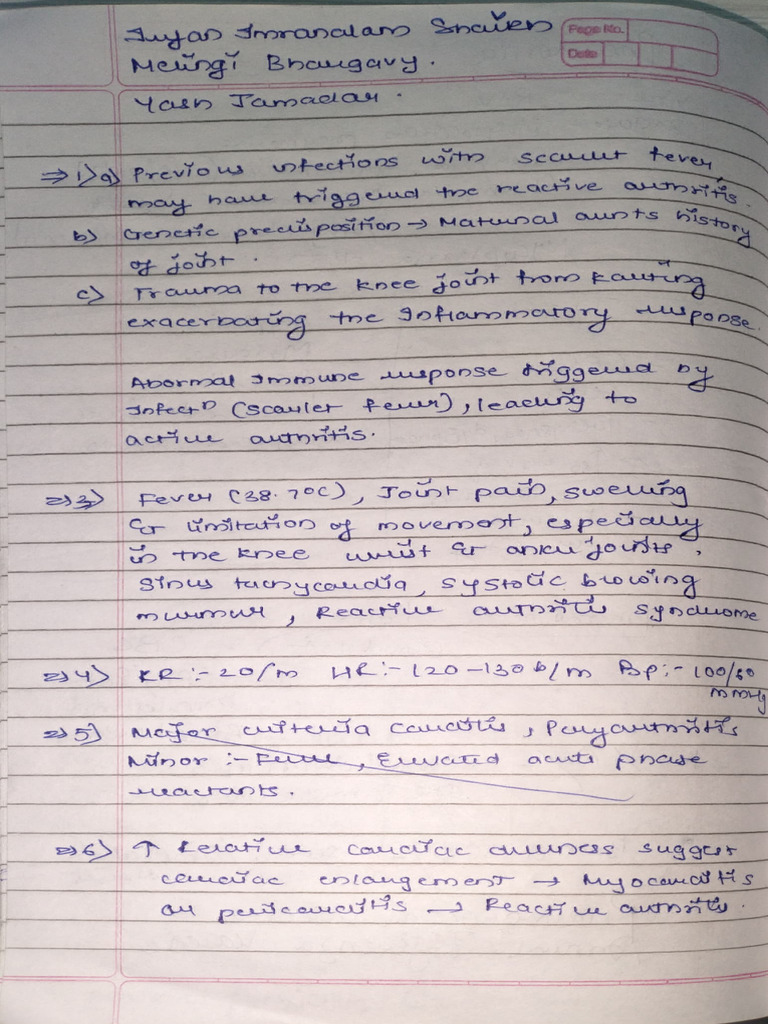 Sujan Imranalam Shaikh
Page No.
Date
Melingi Bhargavy.
Yash Jamadar.
⇒ 1) a) Previous infections with scarlet fever,
may have triggered the reactive arthritis.
b) Genetic predisposition → Maternal aunts history
of joint.
c) Trauma to the knee joint from
exacerbating the Inflammatory response.
Abormal Immune response triggered by
Infectⁿ (scarlet fever), leading to
active arthritis.
⇒ 3) Fever (38.7°C), Joint pain, swelling
& limitation of movement, especially
in the knee wrist & ankle joints,
Sinus tachycardia, systolic blowing
murmur, Reactive arthritis syndrome
⇒ 4) RR :- 20/m HR :- 120-130 b/m Bp :- 100/60
mmHg
⇒ 5) Major criteria carditis, Polyarthritis
Minor :- Fever, Elevated acute phase
reactants.
⇒ 6) ↑ Relative cardiac dullness suggest
cardiac enlargement → Myocarditis
or pericarditis → Reactive arthritis.